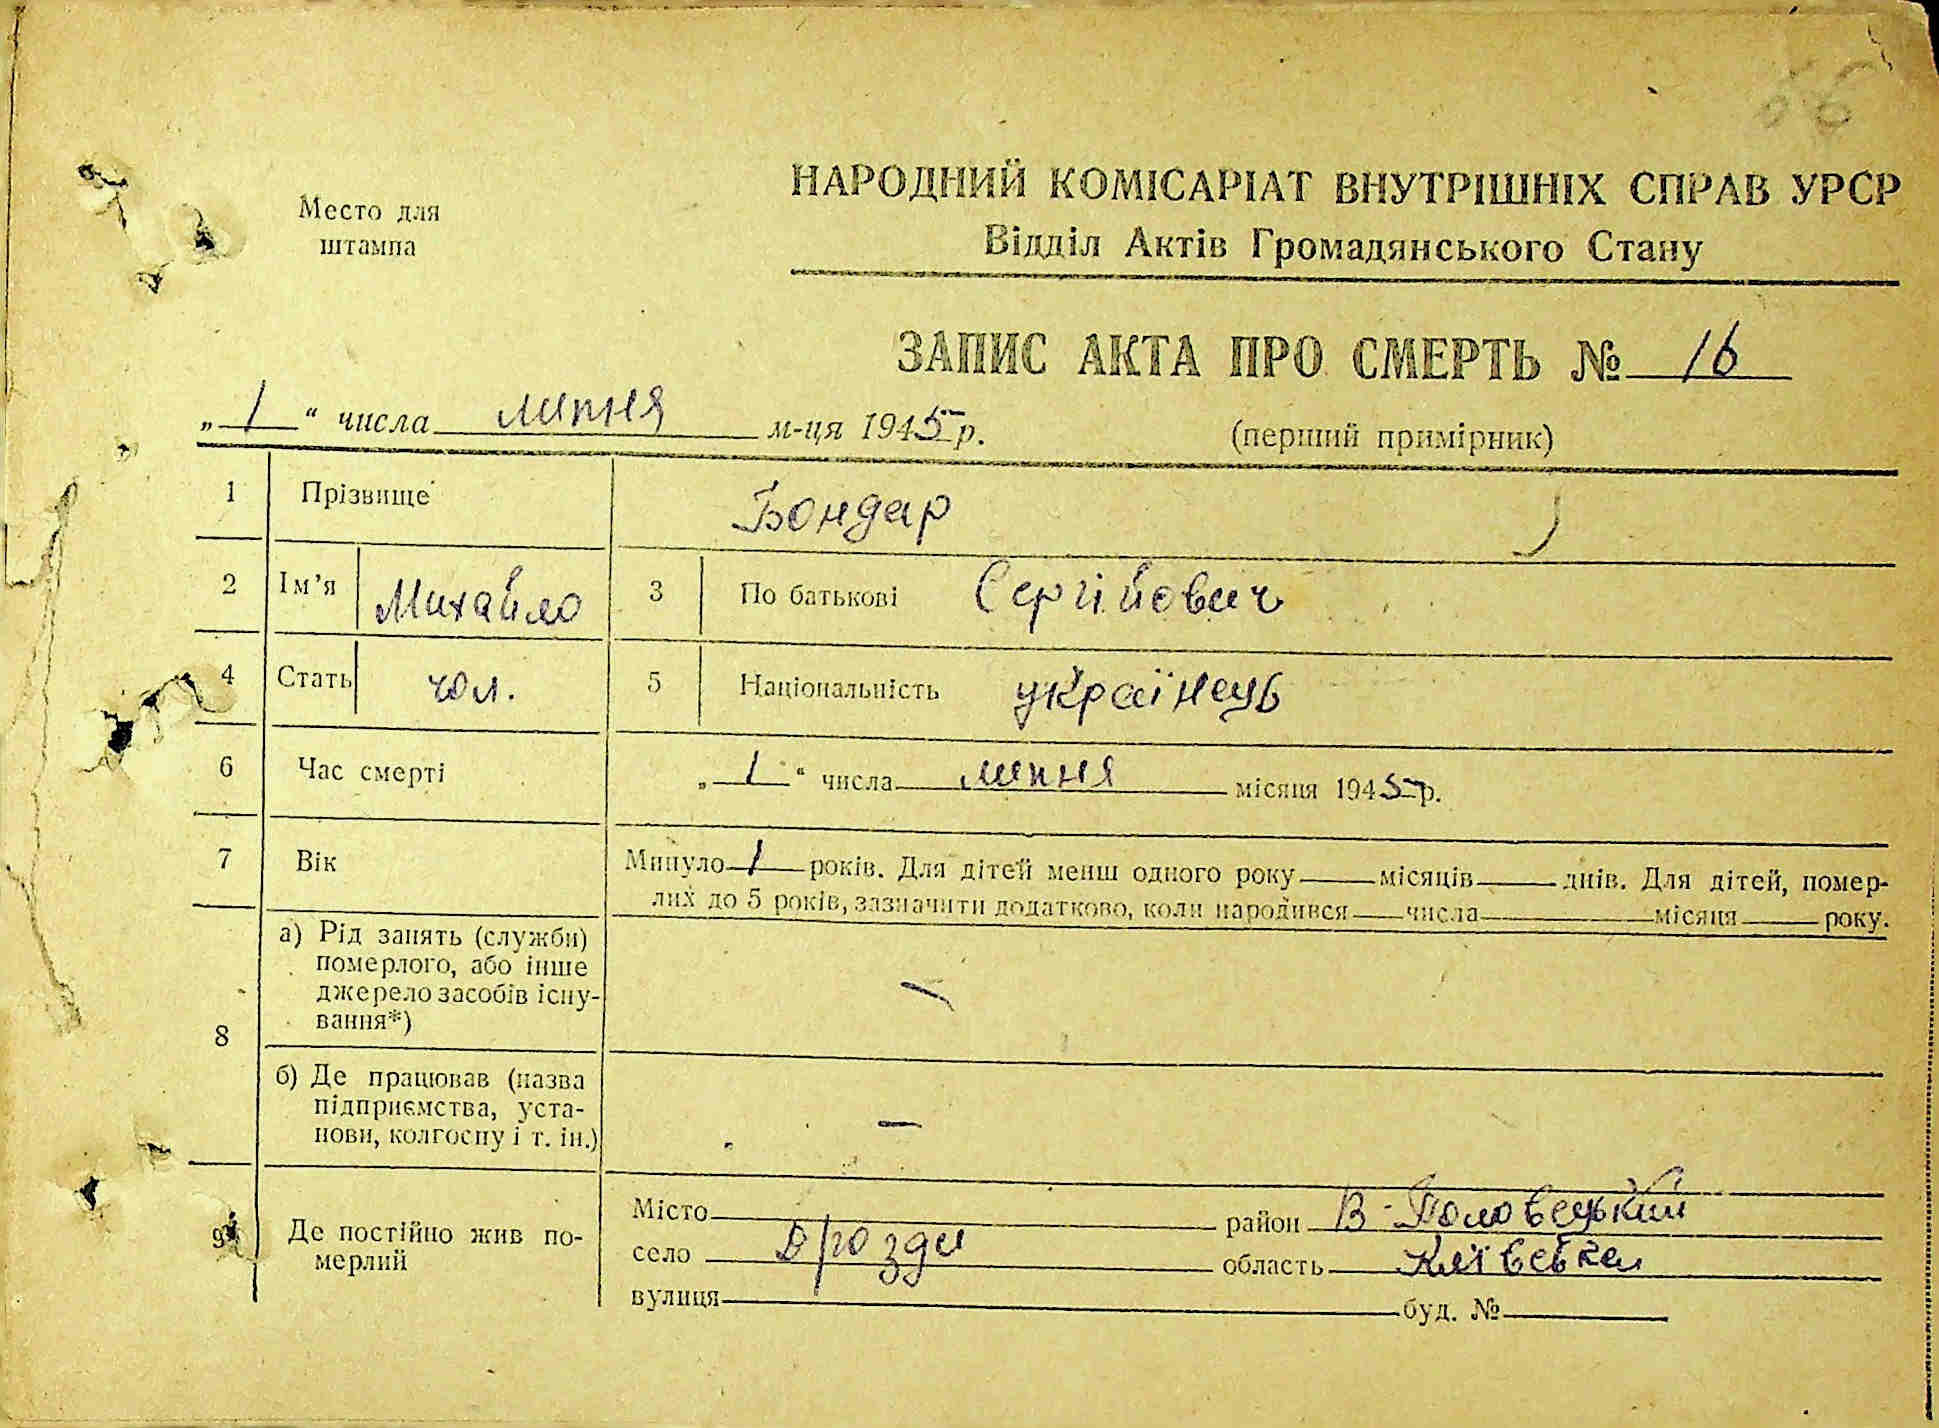 66
Место для
штампа
НАРОДНИЙ КОМІСАРІАТ ВНУТРІШНІХ СПРАВ УРСР
Відділ Актів Громадянського Стану
ЗАПИС АКТА ПРО СМЕРТЬ № 16
„1“ числа липня м-ця 1945 р.
(перший примірник)
1 Прізвище Бондар
2 Ім’я Михайло 3 По батькові Сергійович
4 Стать чол. 5 Національність українець
6 Час смерті „1“ числа липня місяця 1945 р.
7 Вік Минуло 1 років. Для дітей менш одного року місяців днів. Для дітей, помер-
лих до 5 років, зазначити додатково, коли народився числа місяця року.
8 а) Рід занять (служби)
померлого, або інше
джерело засобів існу-
вання*) —
б) Де працював (назва
підприємства, уста-
нови, колгоспу і т. ін.) —
9 Де постійно жив по-
мерлий
Місто район В-Половецький
село Дрозди область Київська
вулиця буд. №